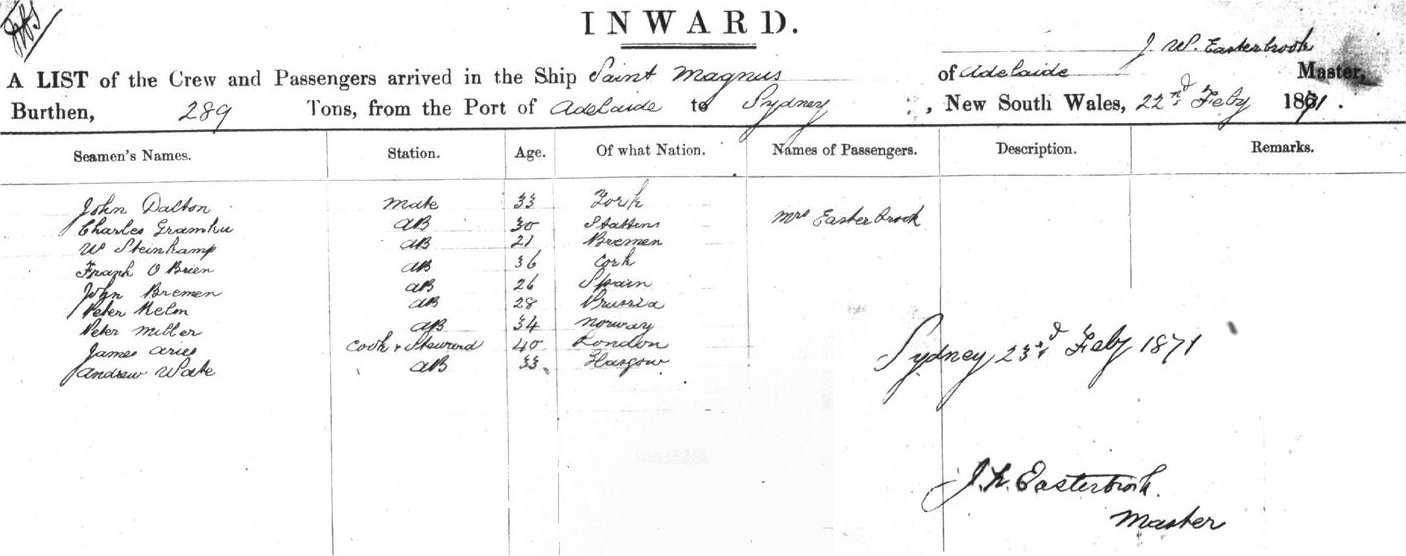 INWARD.
J. W. Easterbrook
A LIST of the Crew and Passengers arrived in the Ship Saint Magnus of Adelaide Master,
Burthen, 289 Tons, from the Port of Adelaide to Sydney, New South Wales, 22nd Feby 1871.
Seamen's Names. Station. Age. Of what Nation. Names of Passengers. Description. Remarks.
John Dalton Mate 33 York
Charles AB 30 Mrs Easterbrook
W Steinkamp AB 21 Bremen
Frank O Brien AB 36 Cork
John Bremen AB 26 Spain
Peter AB 28 Prussia
Peter Miller AB 34 Norway
James Aries Cook & Steward 40 London
Andrew Wate AB 33 Glasgow
Sydney 23rd Feby 1871
Easterbrook.
Master